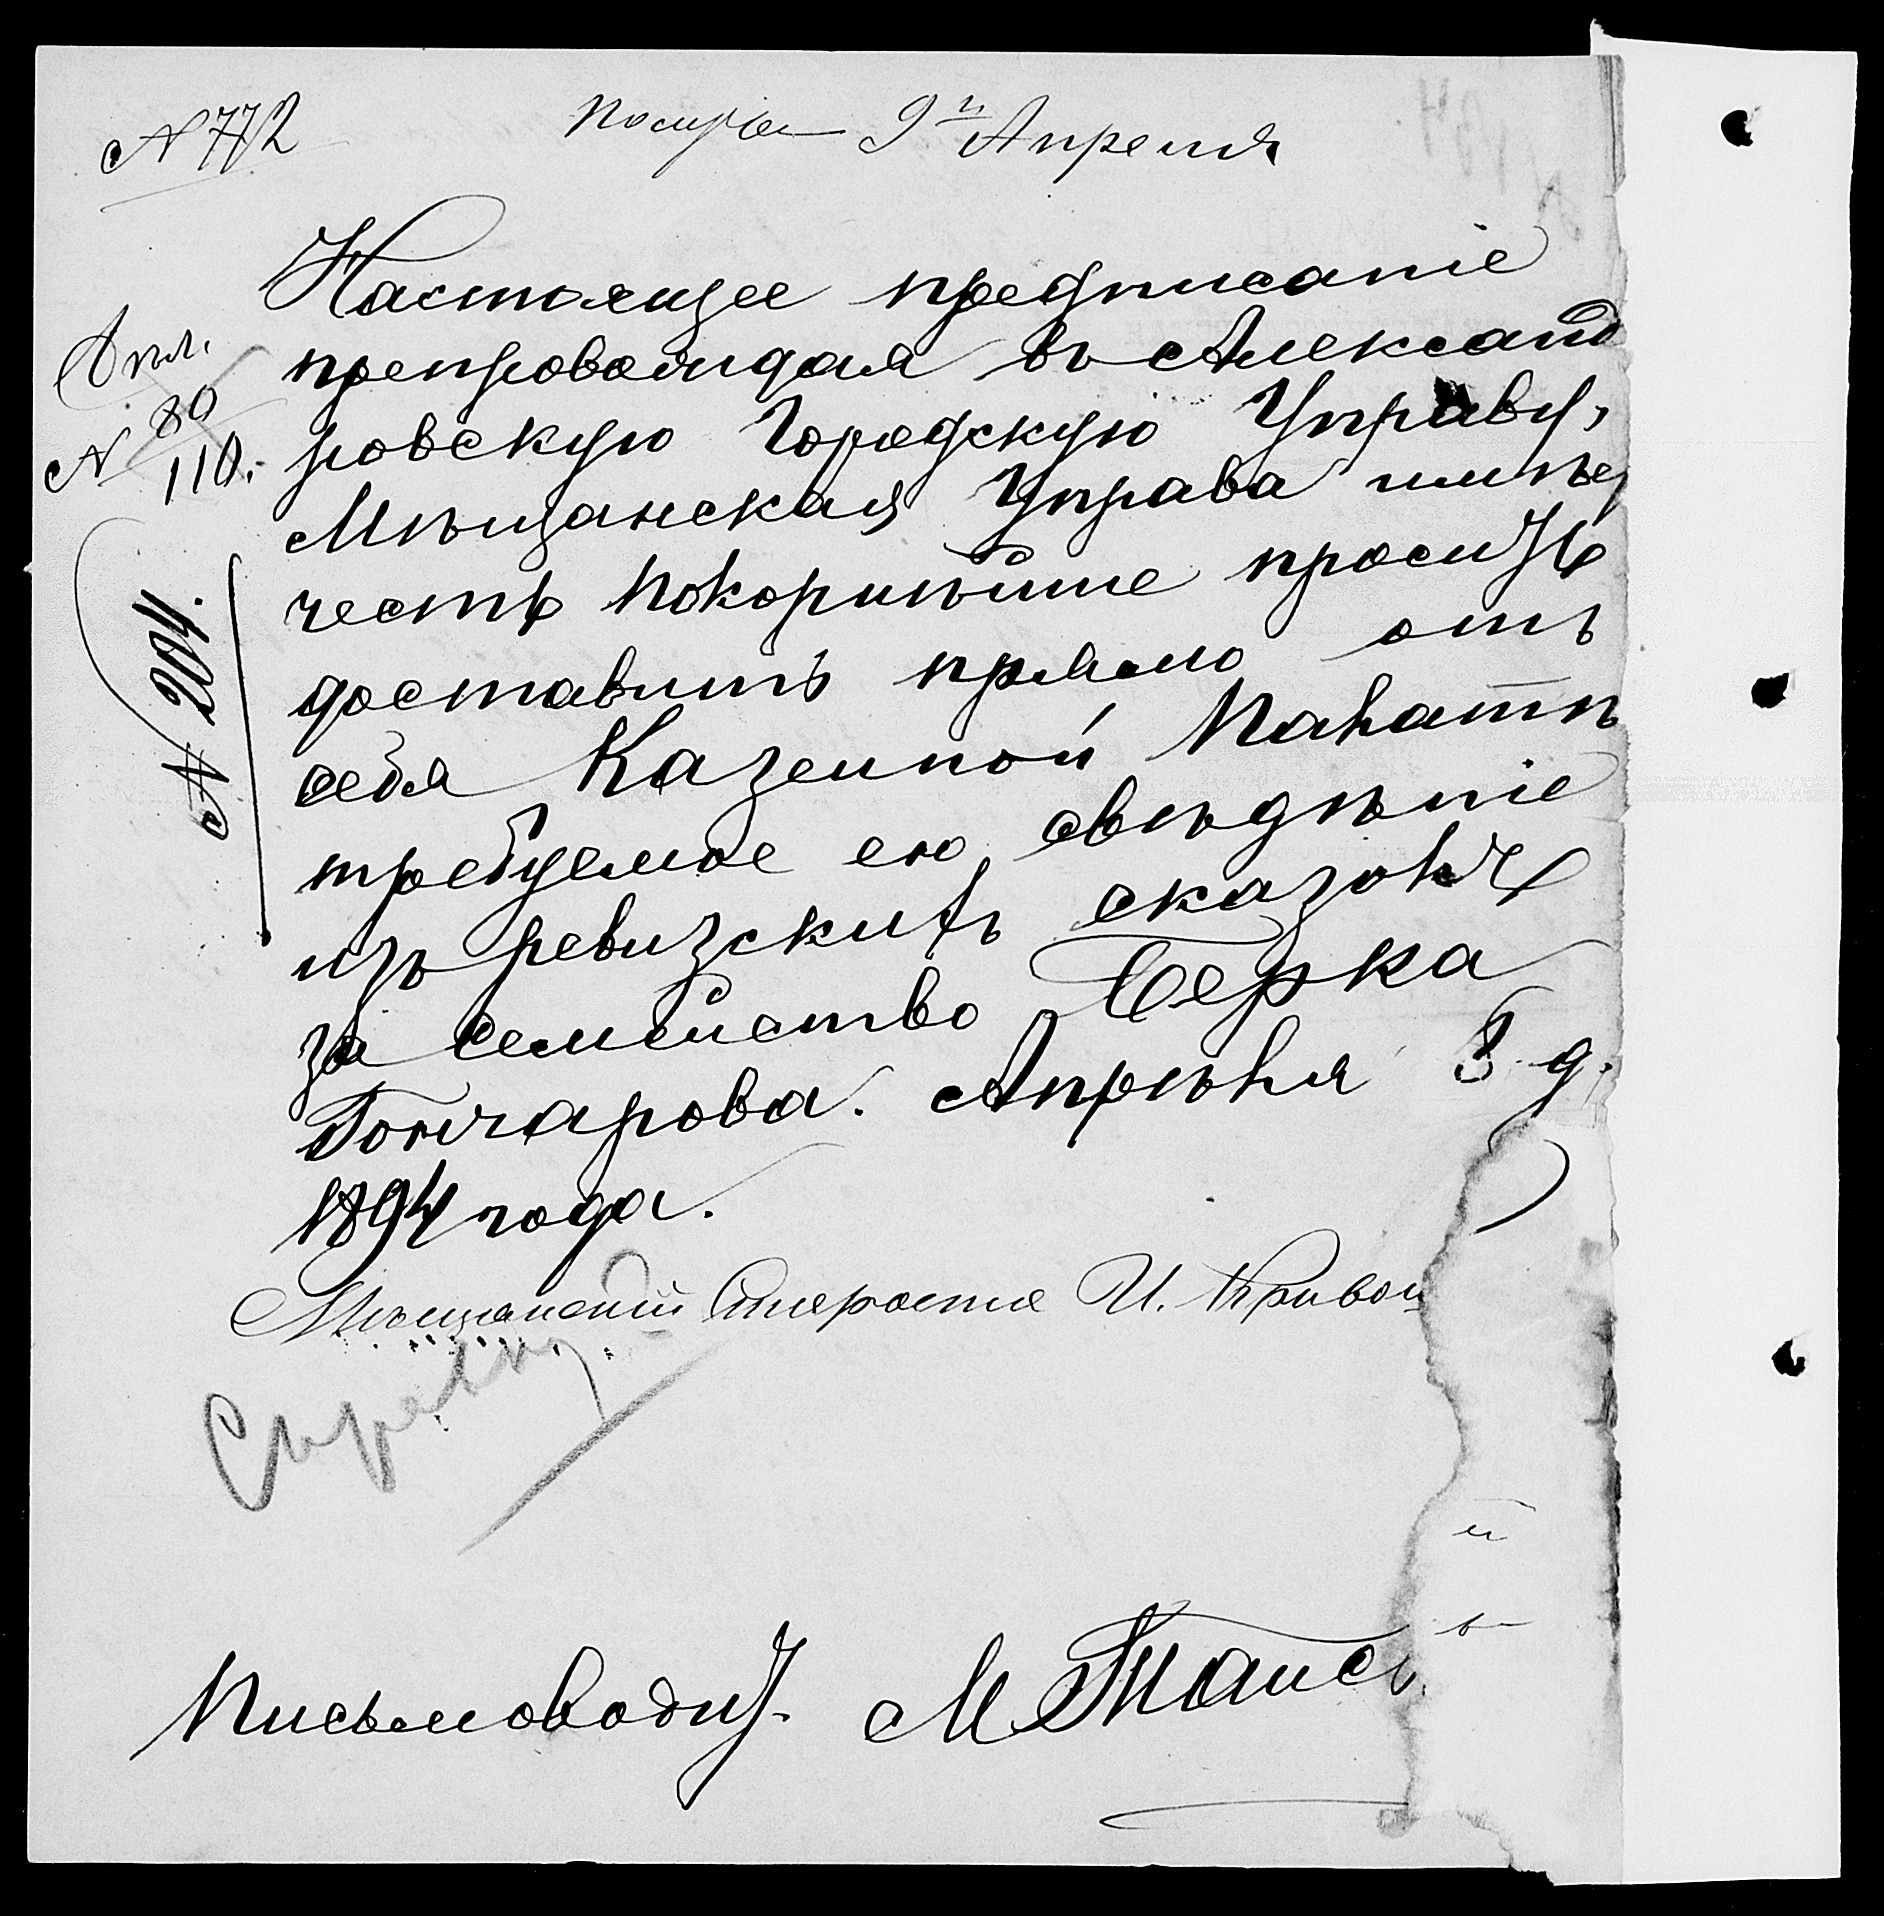 N 772
Получен 9го Апреля
Настоящее предписание
препровождая въ Александ
ровскую Городскую Управу,
Мѣщанская Управа имѣе
честь покорнѣйше просить
доставить прямо отъ
себя Казенной Палатѣ
требуемое ею свѣдѣніе
изъ ревизскихъ сказокъ
за семейство Берка
Гончарова. Апрѣля 8 д.
1894 года.
Апл.
80
N 110.
N 2004.
Мѣщанский Староста И. Кривош
Справку
Письмоводит.